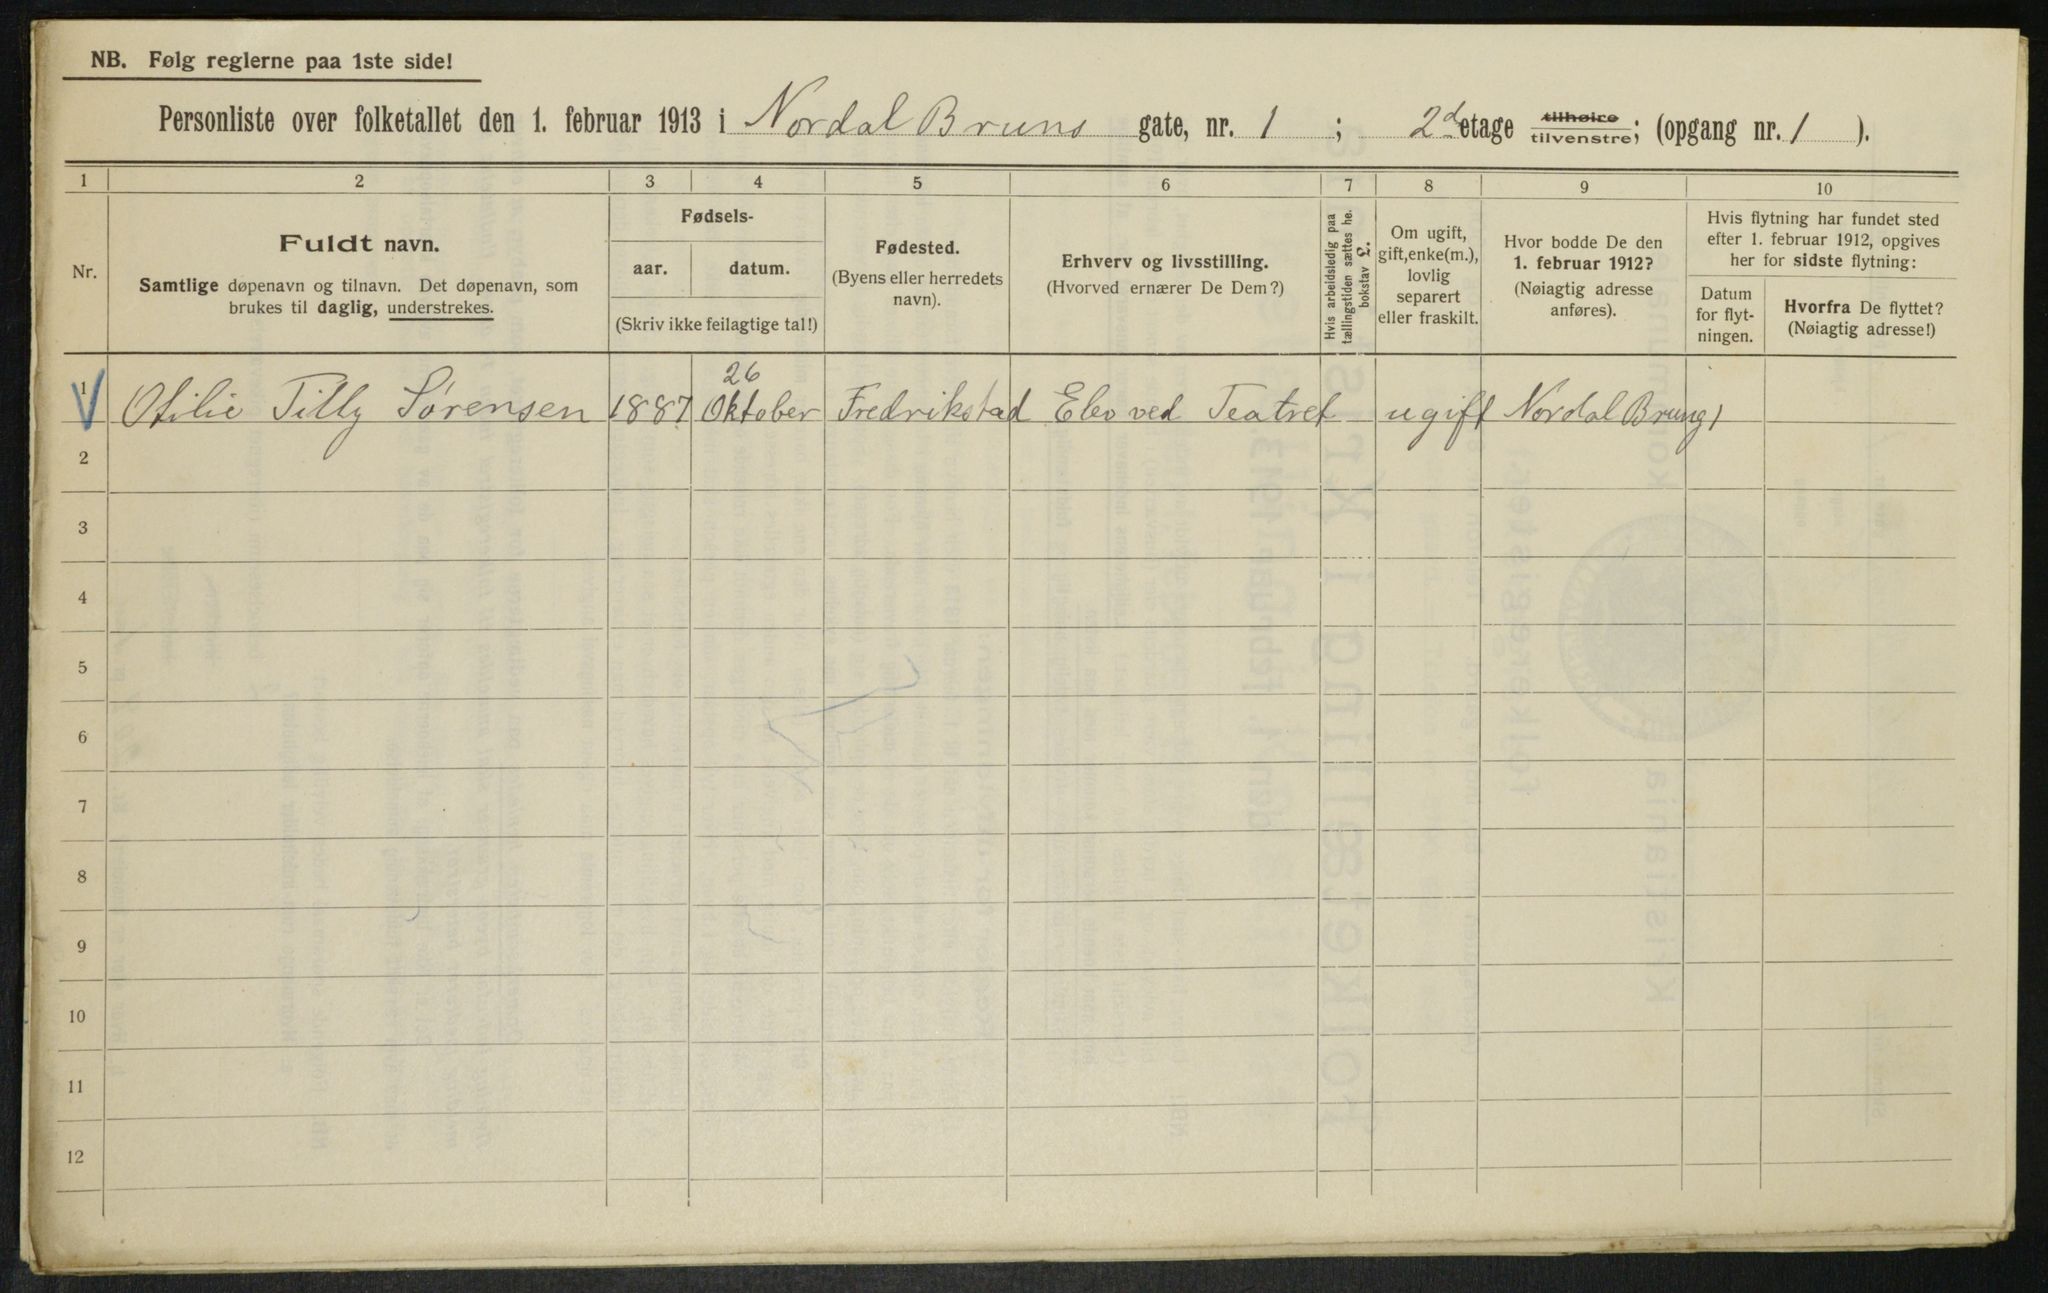 NB. Følg reglerne paa 1ste side!
Personliste over folketallet den 1. februar 1913 i Nordal Bruns gate, nr. 1 ; 2d etage tilhøire tilvenstre; (opgang nr. 1 ).
1 2 3 4 5 6 7 8 9 10
Nr.
Fuldt navn.
Samtlige døpenavn og tilnavn. Det døpenavn, som
brukes til daglig, understrekes.
Fødsels-
aar. datum.
(Skriv ikke feilagtige tal!)
Fødested.
(Byens eller herredets
navn).
Erhverv og livsstilling.
(Hvorved ernærer De Dem?)
Hvis arbeidsledig paa
tællingstiden sættes he.
bokstav L.
Om ugift,
gift, enke(m.),
lovlig
separert
eller fraskilt.
Hvor bodde De den
1. februar 1912?
(Nøiagtig adresse
anføres).
Hvis flytning har fundet sted
efter 1. februar 1912, opgives
her for sidste flytning:
Datum
for flyt-
ningen.
Hvorfra De flyttet?
(Nøiagtig adresse!)
1 Otilie Tilly Sørensen 1887 26 Oktober Fredrikstad Elev ved Teatret ugift Nordal Brunsg 1
2
3
4
5
6
7
8
9
10
11
12